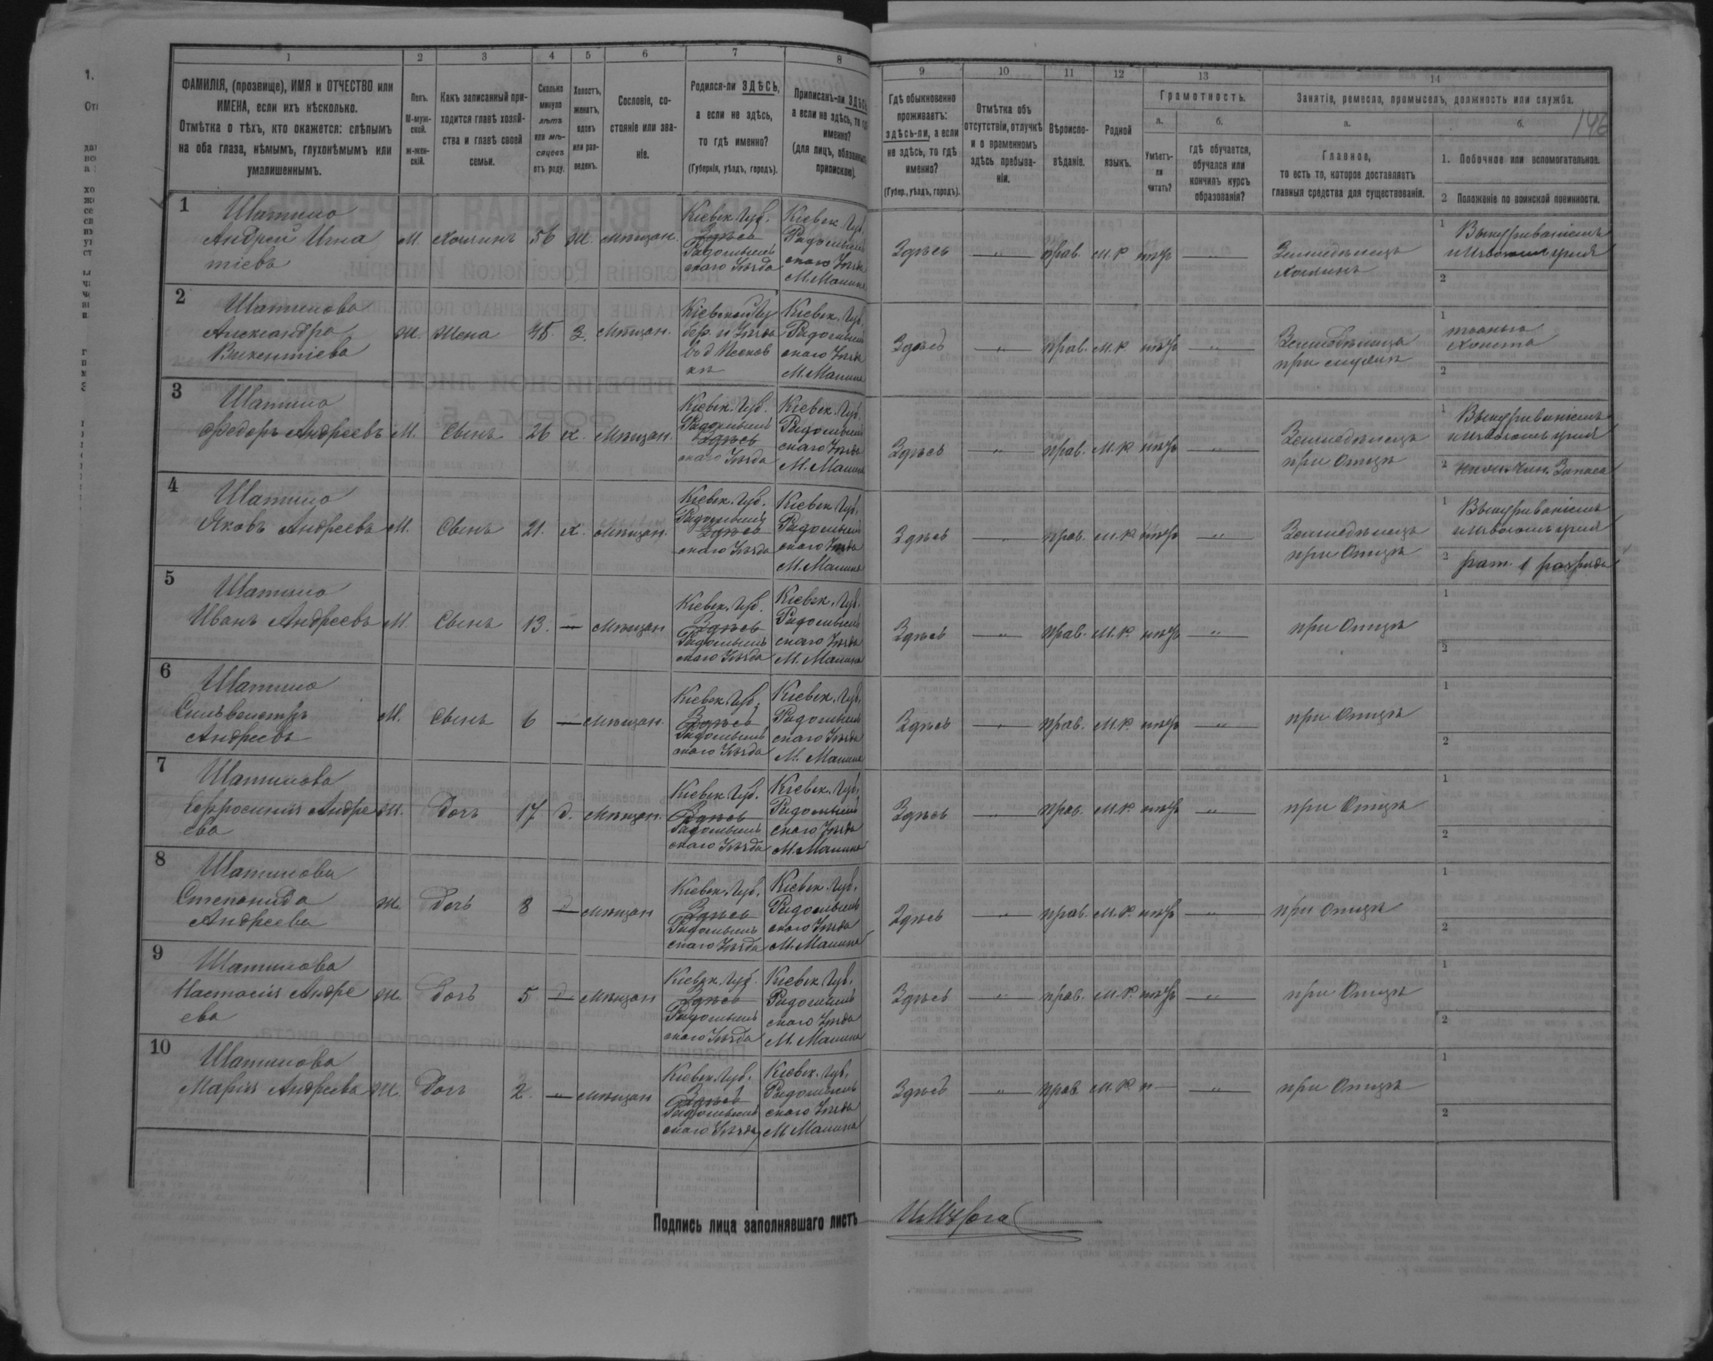 1 2 3 4 5 6 7 8 9 10 11 12 13 14
ФАМИЛІЯ, (прозвище), ИМЯ и ОТЧЕСТВО или
ИМЕНА, если ихъ нѣсколько.
Отмѣтка о тѣхъ, кто окажется: слѣпымъ
на оба глаза, нѣмымъ, глухонѣмымъ или
умалишеннымъ.
Полъ.
М-муж-
ской.
ж-жен-
скій.
Какъ записанный при-
ходится главѣ хозяй-
ства и главѣ своей
семьи.
Сколько
минуло
лѣтъ
или мѣ-
сяцевъ
отъ роду.
Холостъ,
женатъ,
вдовъ
или раз-
веденъ.
Сословіе, со-
стояніе или зва-
ніе.
Родился-ли ЗДѢСЬ,
а если не здѣсь,
то гдѣ именно?
(Губернія, уѣздъ, городъ).
Приписанъ-ли ЗДѢСЬ,
а если не здѣсь, то гдѣ
именно?
(для лицъ, обязанныхъ
припискою).
Гдѣ обыкновенно
проживаетъ:
здѣсь-ли, а если
не здѣсь, то гдѣ
именно?
(Губер., уѣздъ, городъ).
Отмѣтка объ
отсутствіи, отлучкѣ
и о временномъ
здѣсь пребыва-
ніи.
Вѣроиспо-
вѣданіе.
Родной
языкъ.
Грамотность.
а. б.
Умѣетъ-
ли
читать?
гдѣ обучается,
обучался или
кончилъ курсъ
образованія?
Занятія, ремесло, промыселъ, должность или служба.
а. б.
146
Главное,
то есть то, которое доставляетъ
главныя средства для существованія.
1. Побочное или вспомогательное.
2 Положеніе по воинской повинности.
1
Шатило
Андрей Игна
тіевъ
М. Хозяинъ 56 Ж. Мѣщан.
Кіевск. Губ.
Здѣсь
Радомысль
скаго Уѣзда
Кіевск. Губ.
Радомысль
скаго Уѣзда
М. Малина
Здѣсь — прав. М. Р нѣтъ —
Земледѣлецъ
хозяинъ
1
2
2
Шатилова
Александра
Викентіева
Ж. Жена 45 З. Мѣщан.
Кіевск. Губ.
Радомысль
скаго Уѣзда
М. Малина
Здѣсь — " — прав. М. Р нѣтъ — " —
1
2
3
Шатило
Федоръ Андреевъ
М. Сынъ 26 х. Мѣщан.
Кіевск. Губ.
Радомысль
Здѣсь
скаго Уѣзда
Кіевск. Губ.
Радомысль
скаго Уѣзда
М. Малина
Здѣсь — " — прав. М. Р нѣтъ — " —
Земледѣлецъ
при Отцѣ
1
2 Запаса
4
Шатило
Яковъ Андреевъ
М. Сынъ 21. х. Мѣщан.
Кіевск. Губ.
Радомысль
Здѣсь
скаго Уѣзда
Кіевск. Губ.
Радомысль
скаго Уѣзда
М. Малина
Здѣсь — прав. М. Р нѣтъ — " —
Земледѣлецъ
при Отцѣ
1
2 рат. 1 разряда
5
Шатило
Иванъ Андреевъ
М. Сынъ 13. — Мѣщан
Кіевск. Губ.
Здѣсь
Радомысль
скаго Уѣзда
Кіевск. Губ.
Радомысль
скаго Уѣзда
М. Малина
Здѣсь — " — прав. М. Р. нѣтъ — " —
при Отцѣ
1
2
6
Шатило
Сильвестръ
Андреевъ
М. Сынъ 6 — Мѣщан.
Кіевск. Губ.
Здѣсь
Радомысль
скаго Уѣзда
Кіевск. Губ.
Радомысль
скаго Уѣзда
М. Малина
Здѣсь — " — прав. М. Р. нѣтъ — " —
при Отцѣ
1
2
7
Шатилова
Ефросинія Андре
ева
Ж. Дочь 17 д. Мѣщан.
Кіевск. Губ.
Здѣсь
Радомысль
скаго Уѣзда
Кіевск. Губ.
Радомысль
скаго Уѣзда
М. Малина
Здѣсь — " — прав. М. Р. нѣтъ — " —
при Отцѣ
1
2
8
Шатилова
Степанида
Андреева
Ж. Дочь 8 — Мѣщан
Кіевск. Губ.
Здѣсь
Радомысль
скаго Уѣзда
Кіевск. Губ.
Радомысль
скаго Уѣзда
М. Малина
Здѣсь — " — прав. М. Р. нѣтъ — " —
при Отцѣ
1
2
9
Шатилова
Настасія Андре
ева
Ж. Дочь 5 — Мѣщан
Кіевск. Губ.
Здѣсь
Радомысль
скаго Уѣзда
Кіевск. Губ.
Радомысль
скаго Уѣзда
М. Малина
Здѣсь — " — прав. М. Р. нѣтъ — " —
при Отцѣ
1
2
10
Шатилова
Марія Андреева
Ж. Дочь 2. — " — Мѣщан
Кіевск. Губ.
Здѣсь
Радомысль
скаго Уѣзда
Кіевск. Губ.
Радомысль
скаго Уѣзда
М. Малина
Здѣсь — " — прав. М. Р н — " —
при Отцѣ
1
2
Подпись лица заполнявшаго листъ